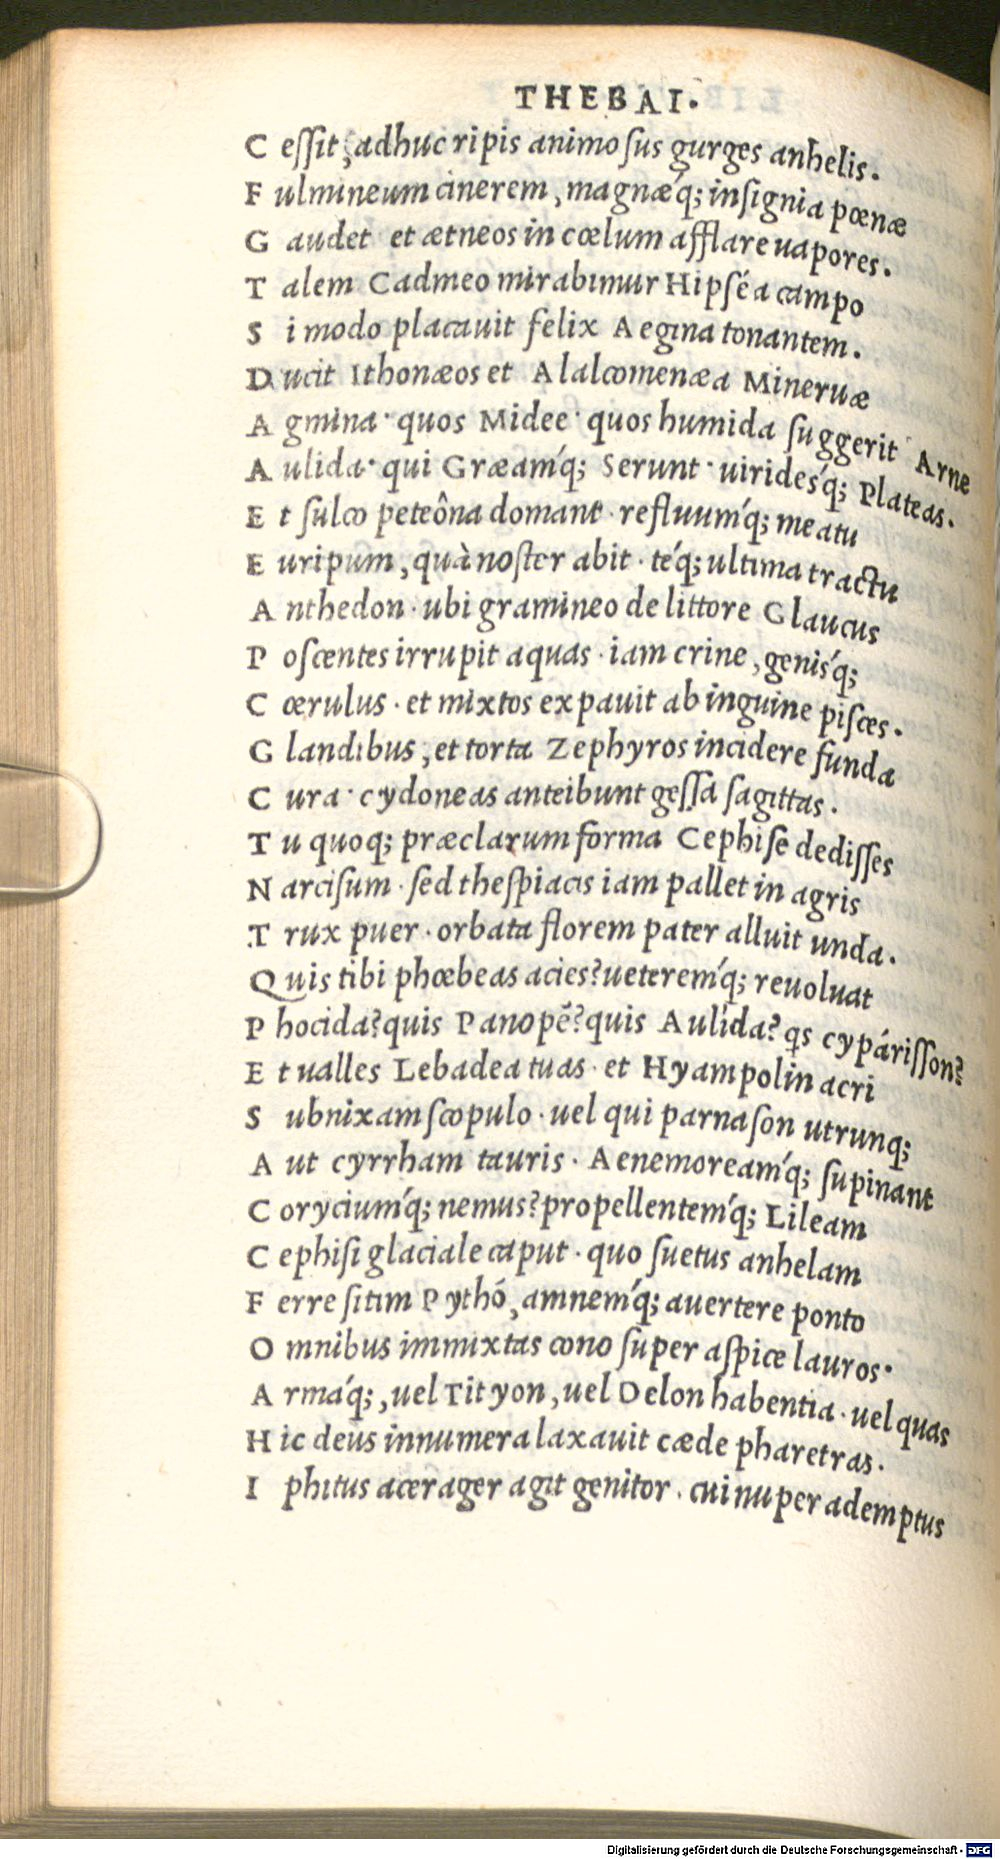 THEBAI.
Cessit, adhuc ripis animosus gurges anhelis.
Fulmineum cinerem, magnæq́; insignia pœnæ
Gaudet et ætneos in cœlum afflare uapores.
Talem Cadmeo mirabimur Hipséa campo
Si modo placauit felix Aegina tonantem.
Ducit Ithonæos et Alalcomenæa Mineruæ
Agmina· quos Midee· quos humida suggerit Arne
Aulida· qui Græamq́; Serunt· uiridesq́; Plateas.
Et sulco peteôna domant· refluumq́; meatu
Euripum, quà noster abit· téq́; ultima tractu
Anthedon· ubi gramineo de littore Glaucus
Poscentes irrupit aquas· iam crine, genisq́;
Cœrulus· et mixtos expauit ab inguine pisces.
Glandibus, et torta Zephyros incidere funda
Cura· cydoneas anteibunt gessa sagittas.
Tu quoq; præclarum forma Cephise dedisses
Narcisum· sed thespiacis iam pallet in agris
Trux puer· orbata florem pater alluit unda.
Quis tibi phœbeas acies? ueteremq́; reuoluat
Phocida? quis Panopẽ? quis Aulida? qs cypárisson?
Et ualles Lebadea tuas· et Hyampolin acri
Subnixam scopulo· uel qui parnason utrunq;
Aut cyrrham tauris· Aenemoreamq́; supinant
Coryciumq́; nemus? propellentemq́; Lileam
Cephisi glaciale caput· quo suetus anhelam
Ferre sitim Pythó, amnemq́; auertere ponto
Omnibus immixtas cono super aspice lauros·
Armáq́;, uel Tityon, uel Delon habentia· uel quas
Hic deus innumera laxauit cæde pharetras.
Iphitus acer ager agit genitor· cui nuper ademptus
Digitalisierung gefördert durch die Deutsche Forschungsgemeinschaft - DFG